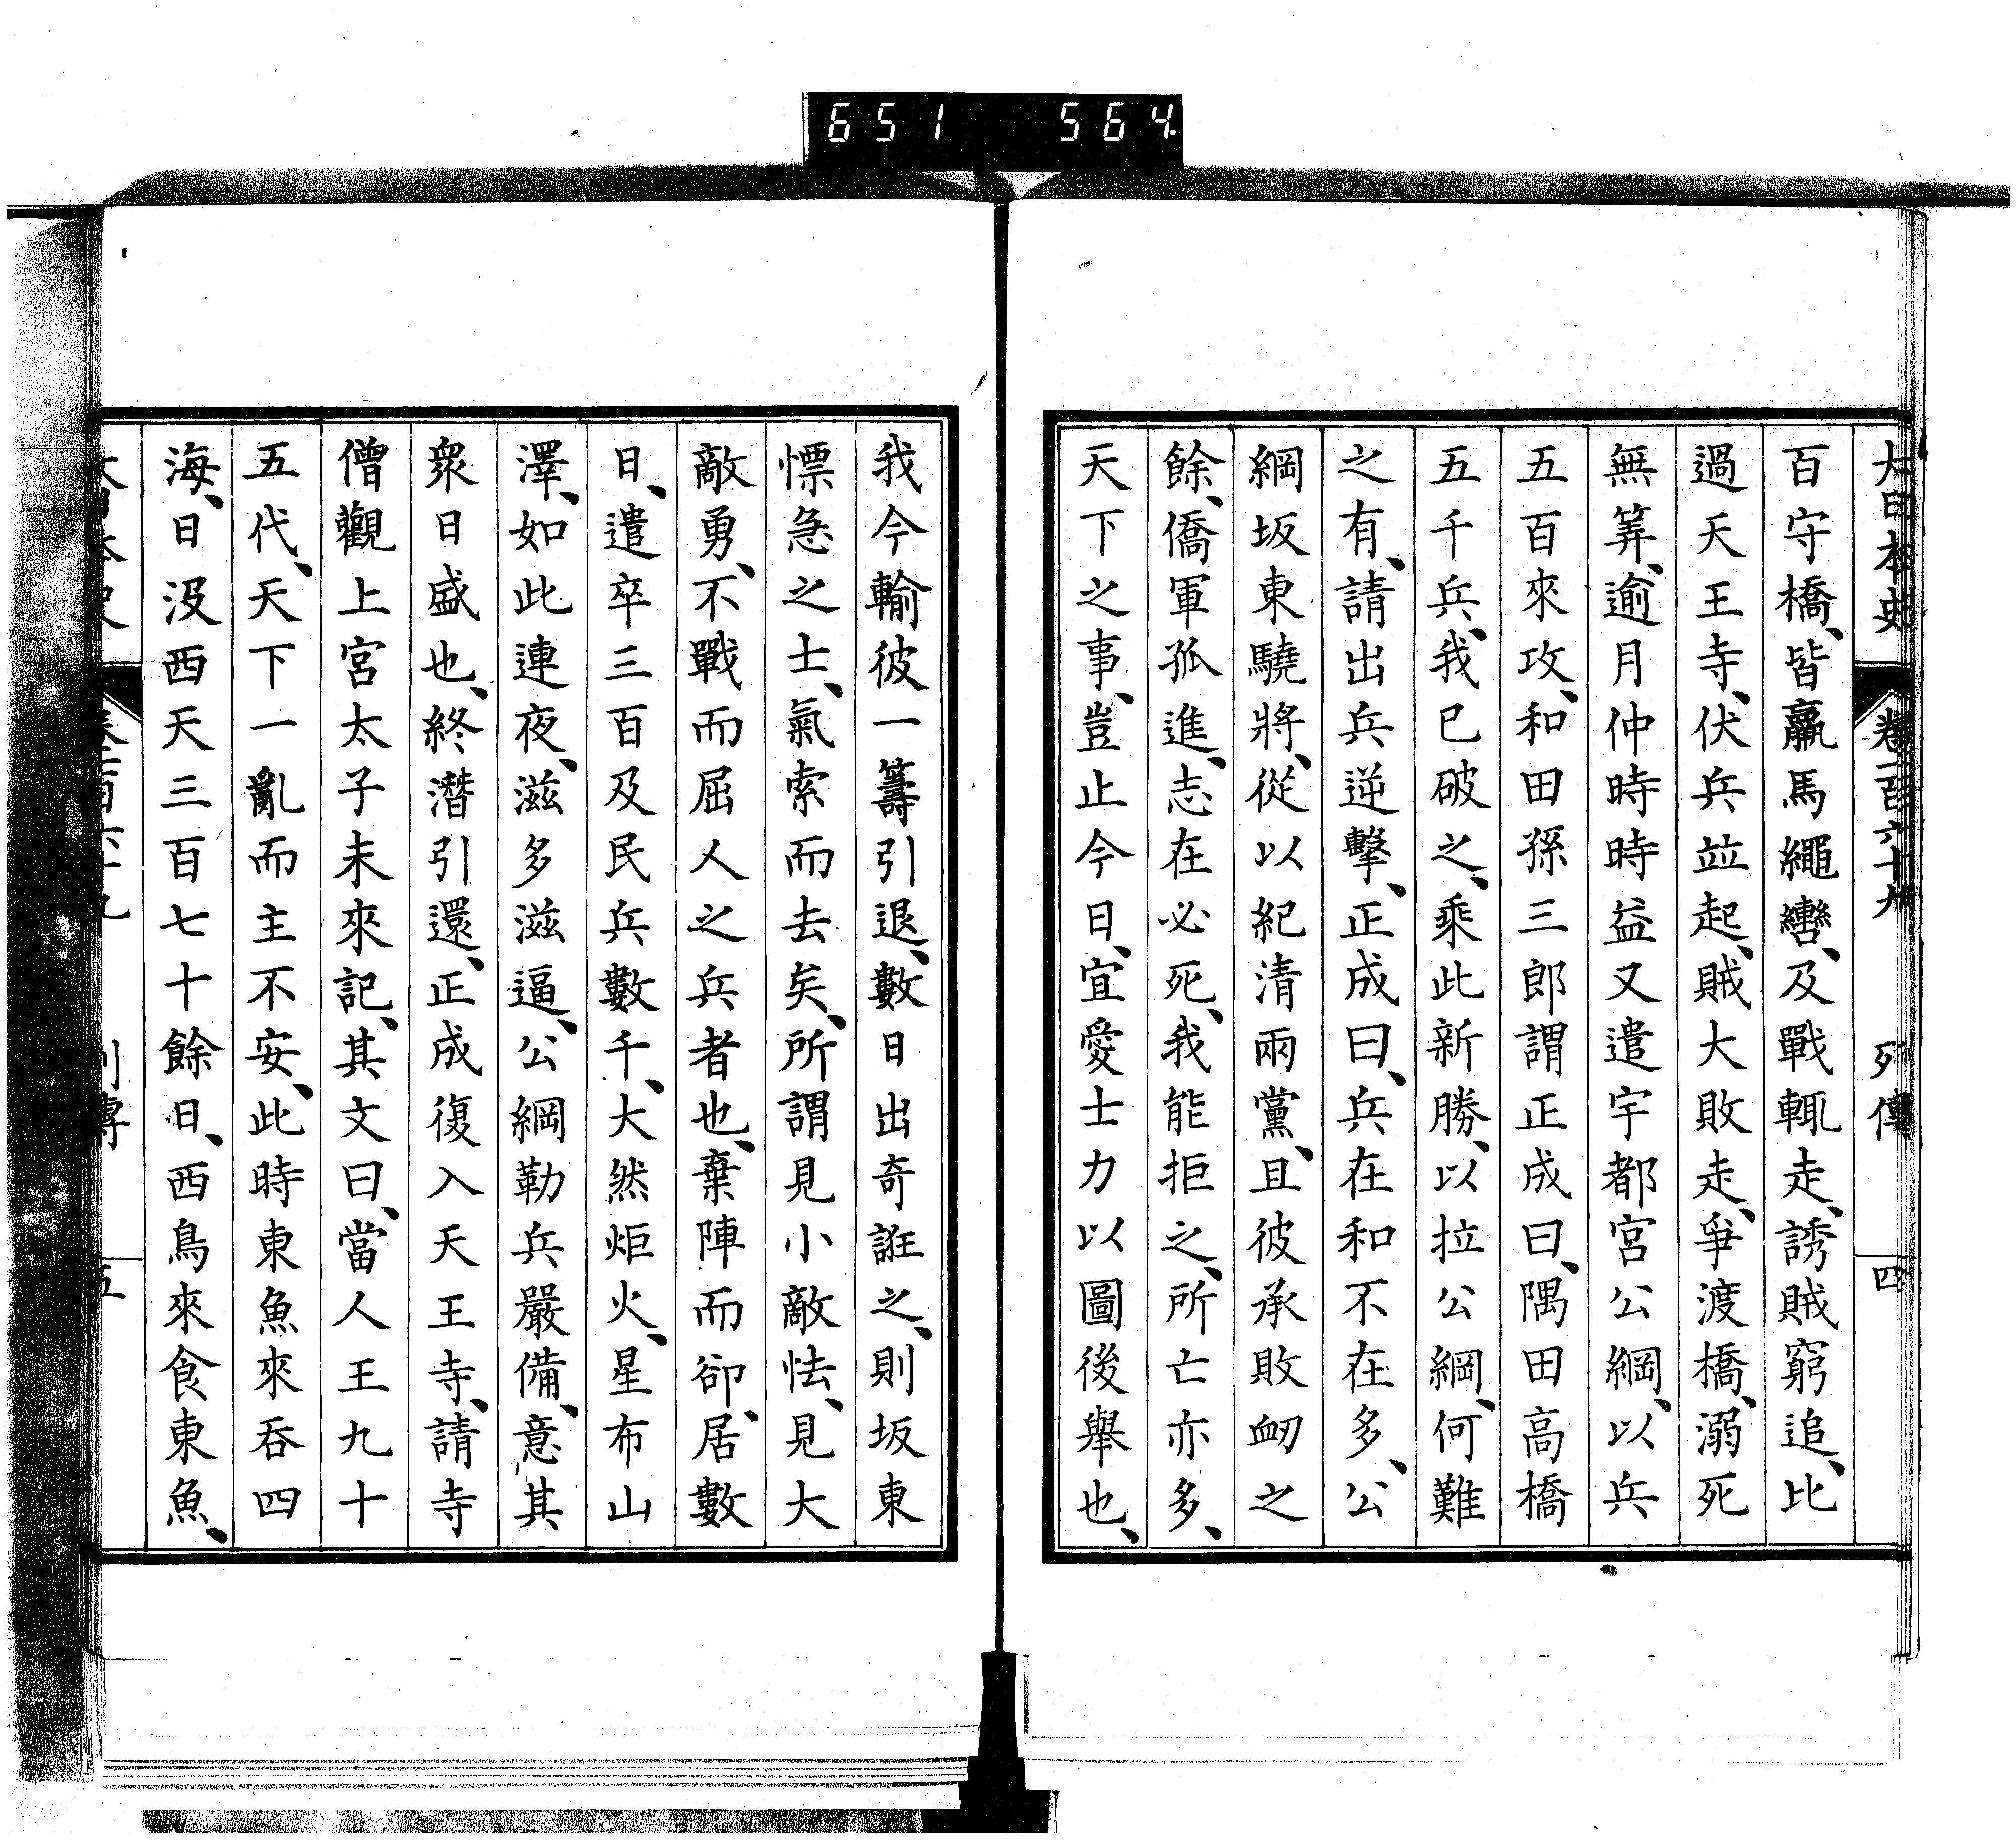 651 564
大日本史 卷一百六十九 列傳 四
百守橋、皆羸馬繩轡、及戰輒走、誘賊窮追、比
過天王寺、伏兵竝起、賊大敗走、爭渡橋、溺死
無筭、逾月仲時時益又遣宇都宮公綱、以兵
五百來攻、和田孫三郎謂正成曰、隅田高橋
五千兵、我已破之、乘此新勝、以拉公綱、何難
之有、請出兵逆擊、正成曰、兵在和不在多、公
綱坂東驍將、從以紀清兩黨、且彼承敗衂之
餘、僑軍孤進、志在必死、我能拒之、所亡亦多、
天下之事、豈止今日、宜愛士力以圖後舉也、
我今輸彼一籌引退、數日出奇誑之、則坂東
慓急之士、氣索而去矣、所謂見小敵怯、見大
敵勇、不戰而屈人之兵者也、棄陣而卻、居數
日、遣卒三百及民兵數千、大然炬火、星布山
澤、如此連夜、滋多滋逼、公綱勒兵嚴備、意其
衆日盛也、終潛引還、正成復入天王寺、請寺
僧觀上宮太子未來記、其文曰、當人王九十
五代、天下一亂而主不安、此時東魚來吞四
海、日沒西天三百七十餘日、西鳥來食東魚、